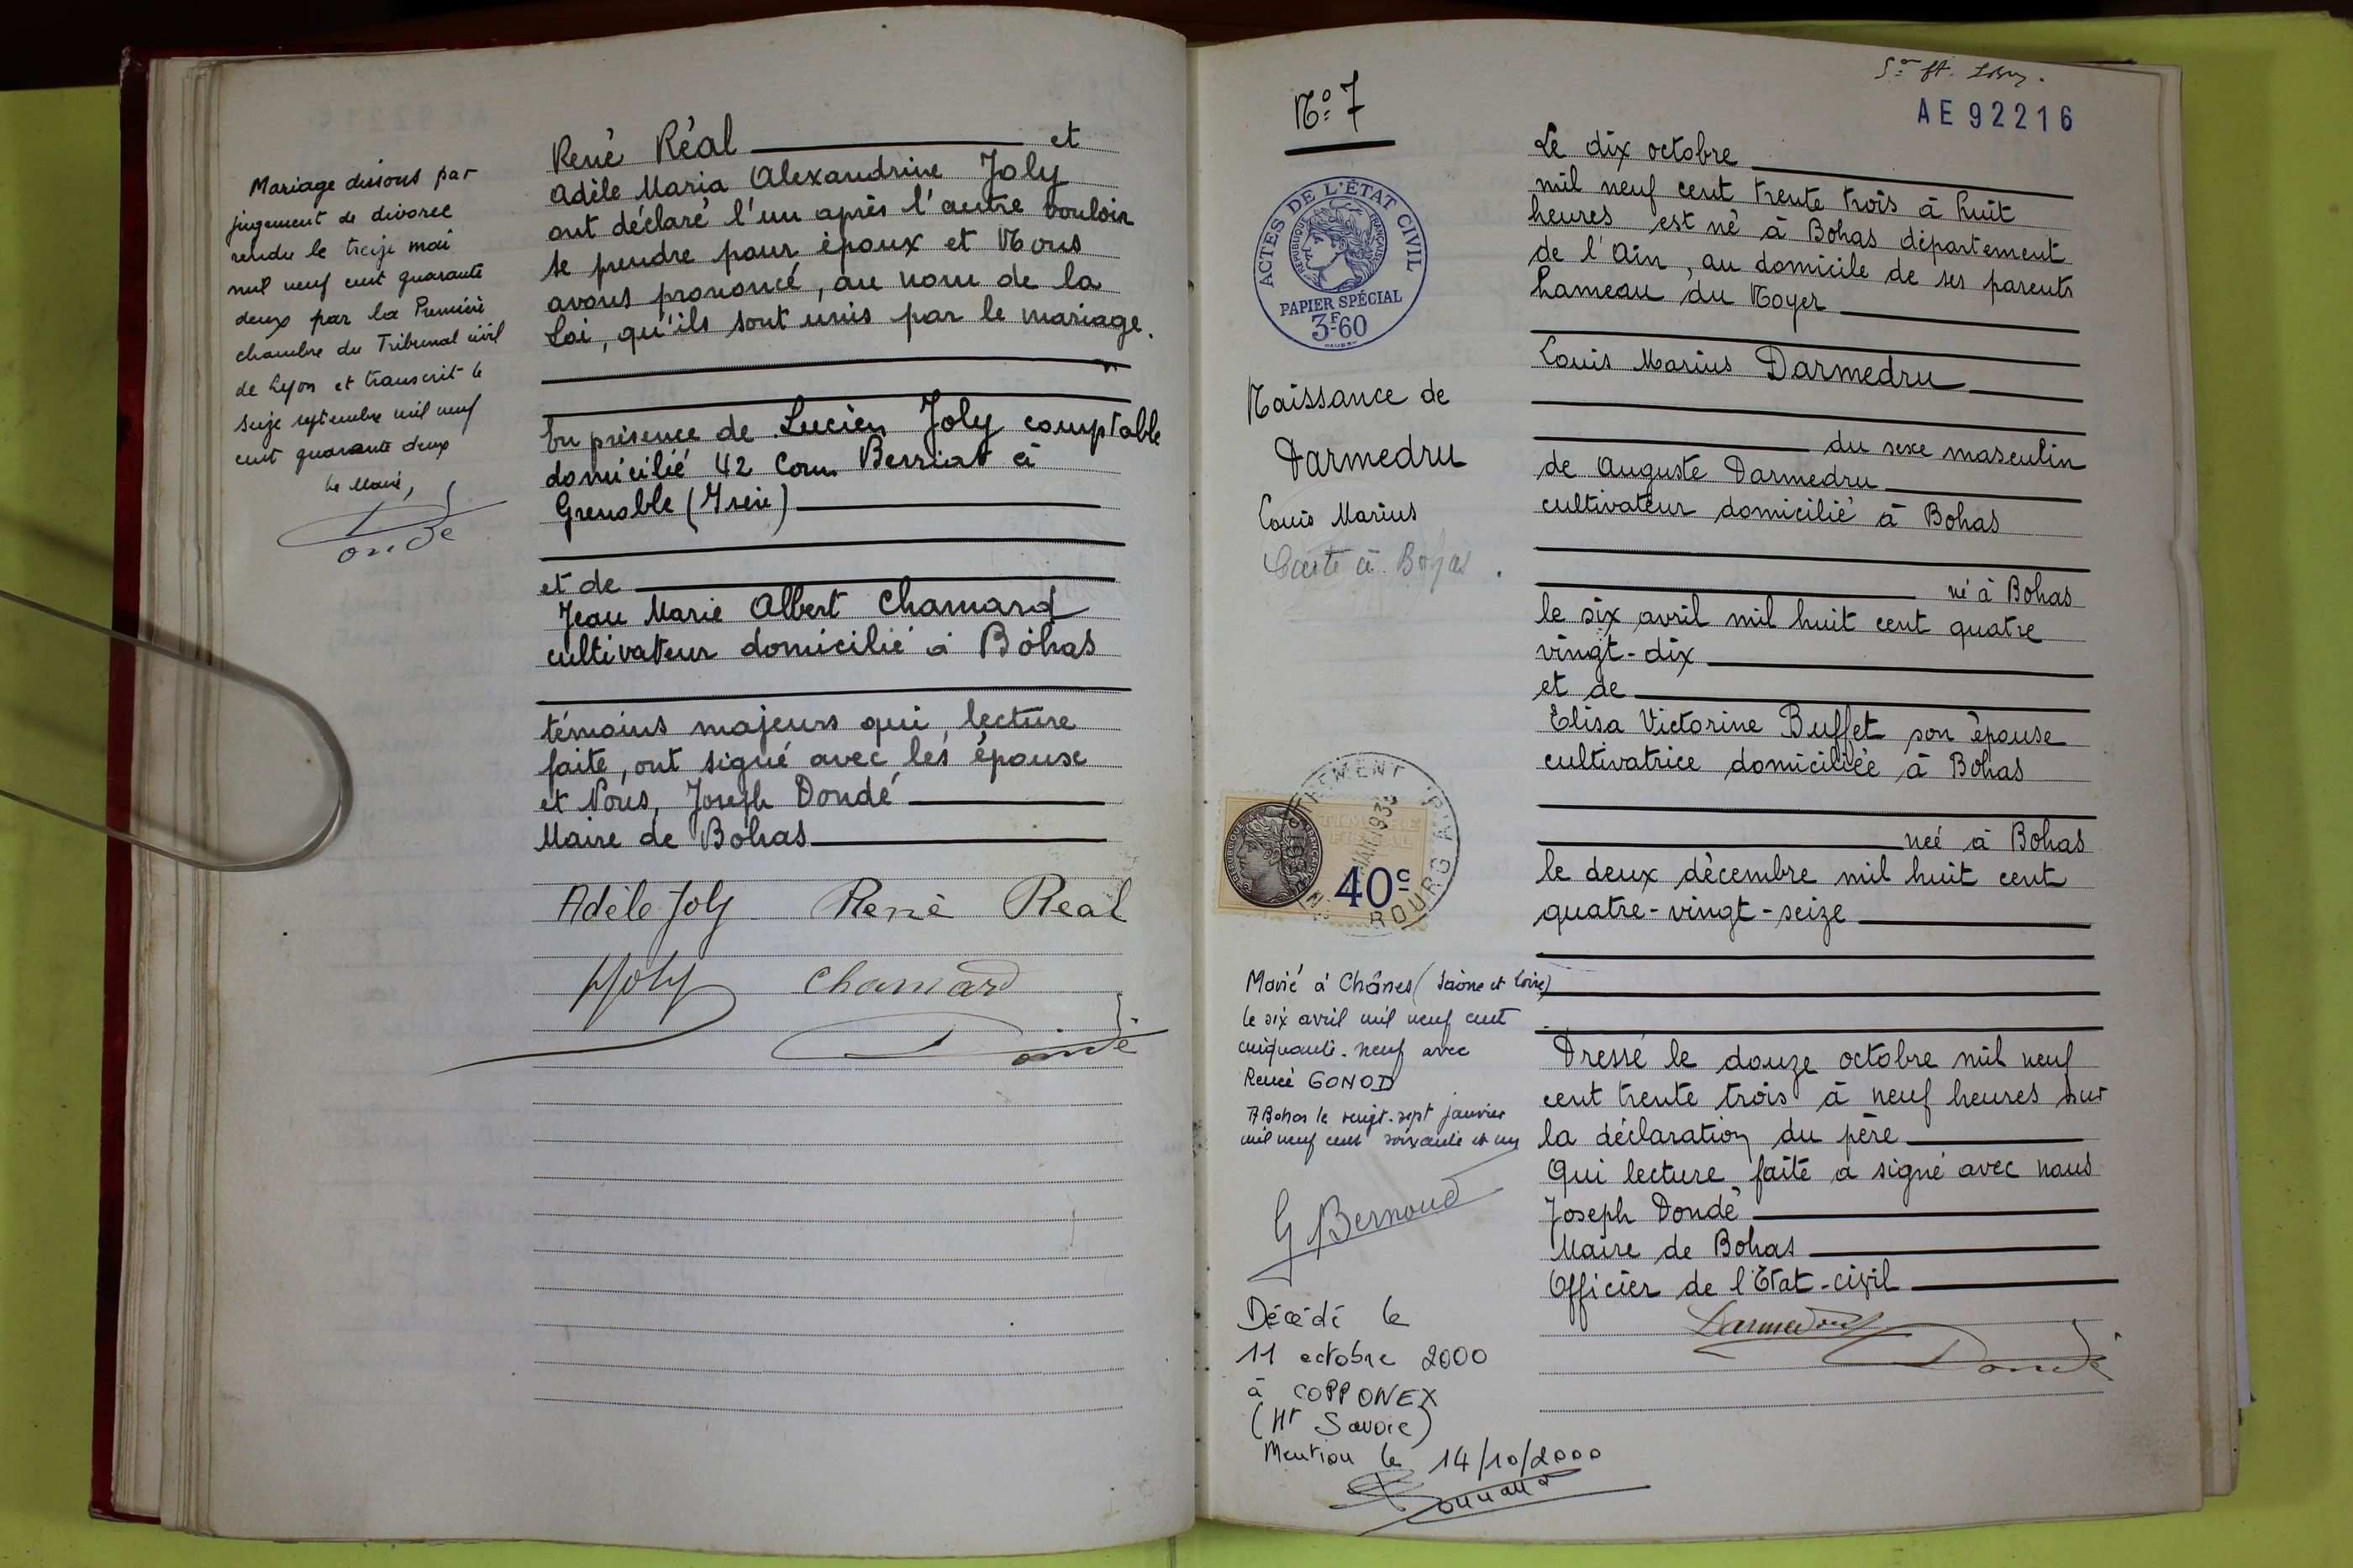 Mariage dissous par
jugement de divorce
rendu le treize mai
mil neuf cent quarante
deux par la Première
chambre du Tribunal civil
de Lyon et transcrit le
seize septembre mil neuf
cent quarante deux
Le Maire,
Dondé
René Réal et
Adèle Maria Alexandrine Joly
ont déclaré l'un après l'autre vouloir
se prendre pour époux et Nous
avons prononcé, au nom de la
Loi, qu'ils sont unis par le mariage.
En présence de Lucien Joly comptable
domicilié 42 Cours Berriat à
Grenoble (Isère)
et de
Jean Marie Albert Chamard
cultivateur domicilié à Bohas
témoins majeurs qui, lecture
faite, ont signé avec les époux
et Nous, Joseph Dondé
Maire de Bohas
Adèle Joly René Réal
Joly Chamard
Dondé
AE 92216
N° 7
ACTES DE L'ÉTAT CIVIL
REPUBLIQUE FRANÇAISE
PAPIER SPÉCIAL
3F60
Naissance de
Darmedru
Louis Marius
Carte à Bohas.
TIMBRE
FISCAL
40c
BOURG
Marié à Chânes (Saône et Loire)
le six avril mil neuf cent
cinquante-neuf avec
Renée GONOD
A Bohas le vingt-sept janvier
mil neuf cent soixante et un
G Bernoud
Décédé le
11 octobre 2000
à COPPONEX
(Hte Savoie)
Mention le 14/10/2000
Le dix octobre
mil neuf cent trente trois à huit
heures est né à Bohas département
de l'Ain, au domicile de ses parents
hameau du Noyer
Louis Marius Darmedru
du sexe masculin
de Auguste Darmedru
cultivateur domicilié à Bohas
né à Bohas
le six avril mil huit cent quatre
vingt-dix
et de
Elisa Victorine Buffet son épouse
cultivatrice domiciliée à Bohas
née à Bohas
le deux décembre mil huit cent
quatre-vingt-seize
Dressé le douze octobre mil neuf
cent trente trois à neuf heures sur
la déclaration du père
Qui lecture faite a signé avec nous
Joseph Dondé
Maire de Bohas
Officier de l'Etat-civil
Darmedru
Dondé